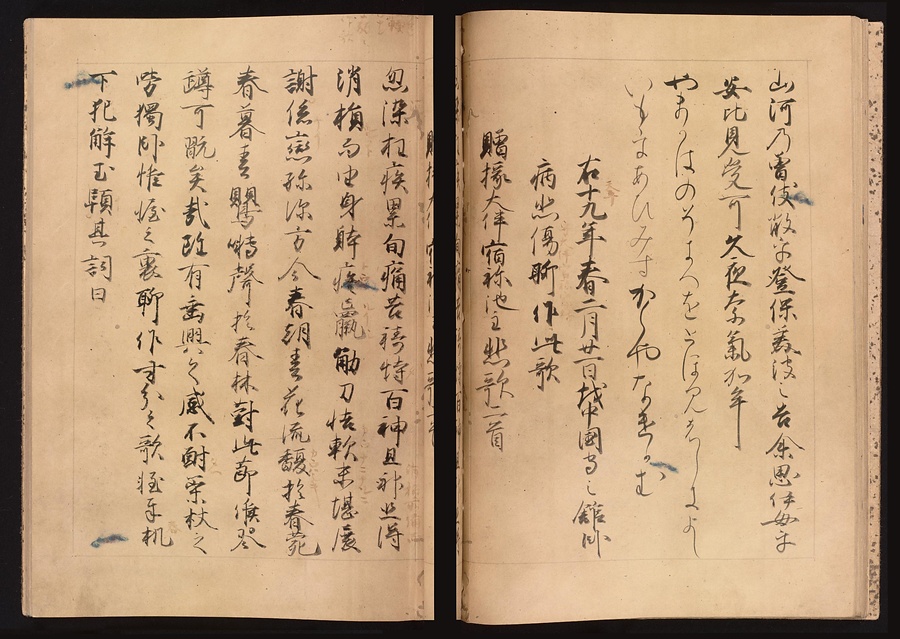 山河乃曽伎敝乎登保美波之吉余思伊母乎
安比見受可久夜奈氣加牟
やまかはのそきへをとほみはしきよし
いもをあひみすかくやなけかむ
右十九年春二月廿一日越中國守之舘臥
病悲傷聊作此歌
贈掾大伴宿祢池主悲歌二首
忽染枉疾累旬痛苦祷恃百神且得
消損而由身體疼羸筋力怯軟未堪展
謝係戀弥深方今春朝春花流馥於春苑
春暮春鶯囀聲於春林對此節候琴
罇可翫矣哉雖有乗興之感不耐策杖之
勞獨臥帷幄之裏聊作寸分之歌軽奉机
下犯解玉頤其詞曰